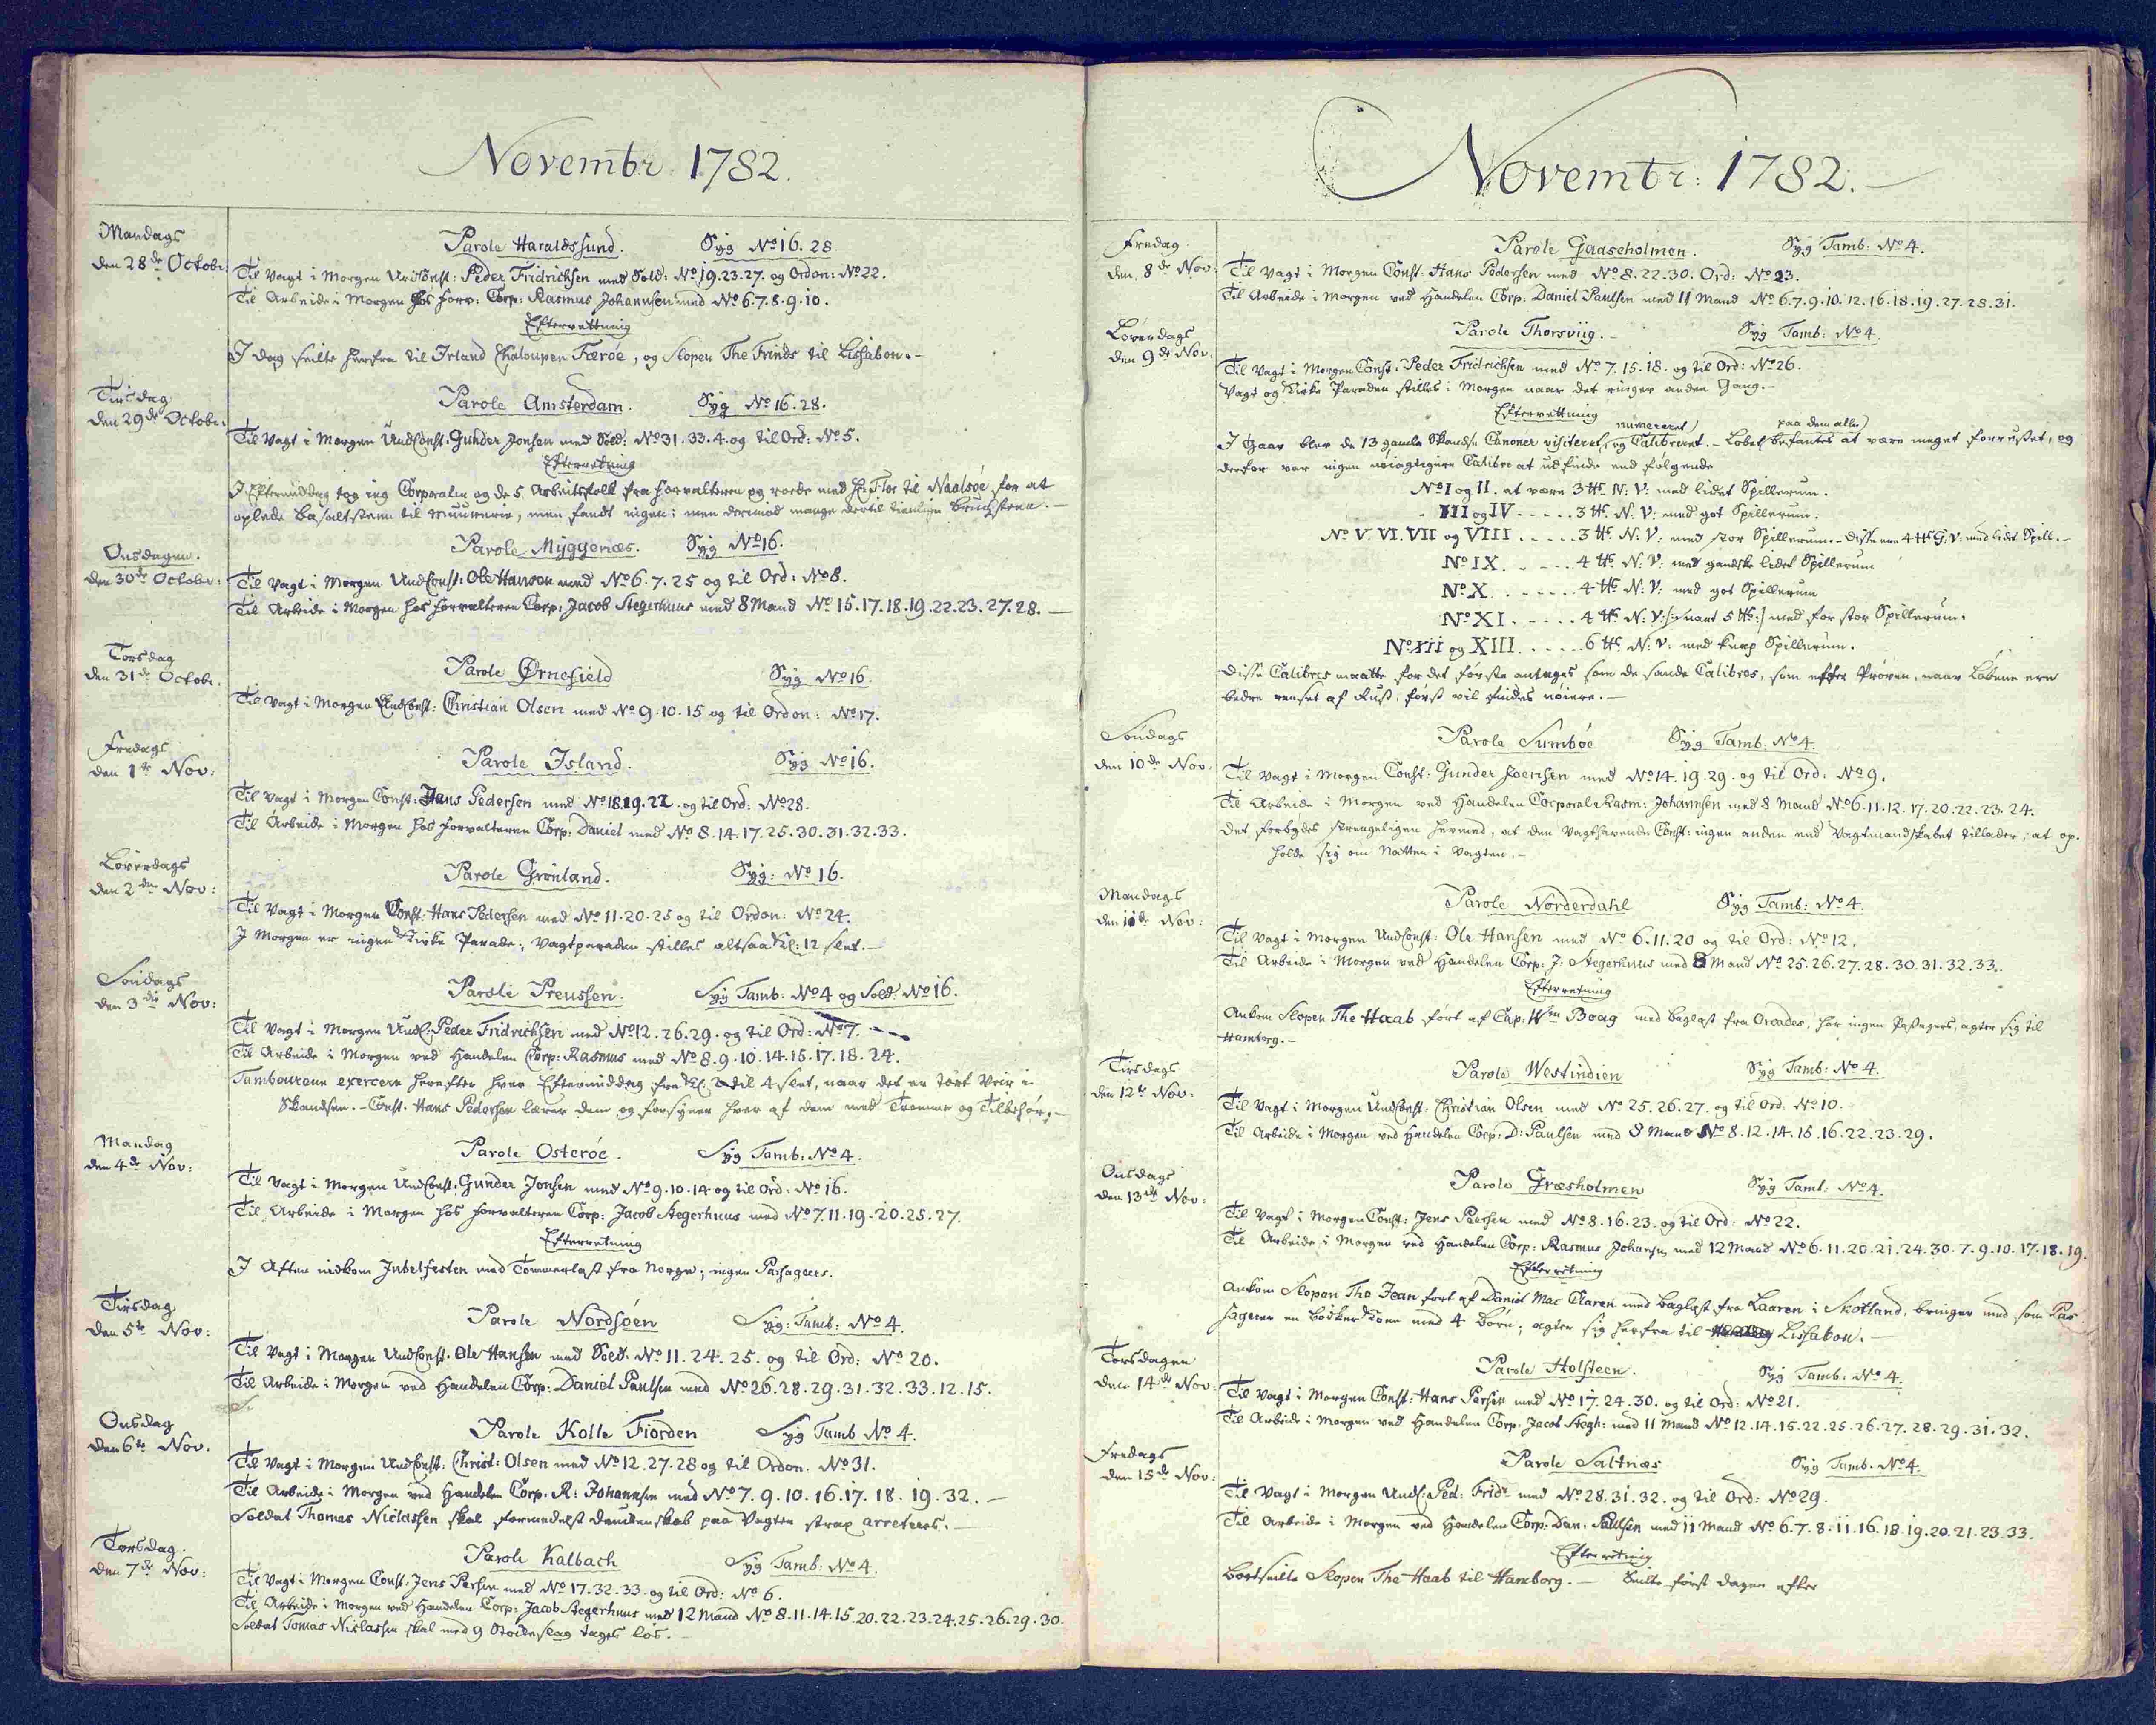 Novembr 1782.
Mandags
den 28de Octobr:
Parole Haraldssund. Syg No 16. 28.
Til Vagt i Morgen UndConst: Peder Fridrichsen med Sold: No 19.23.27. og Ordon: No 22.
Til Arbeide i Morgen hos Forv: Corp: Rasmus Johannsen med No 6.7.8.9.10.
Efterrettning
I dag seilte herfra til Irland Chaloupen Færöe, og Slopen The Frinds til Lissabon.-
Tirsdag
den 29de Octobr:
Parole Amsterdam. Syg No 16.28.
Til Vagt i Morgen UndConst: Gunder Jonsen med Sold: No 31.33.4. og til Ord: No 5.
Efterretning
I Eftermiddag tog jeg Corporalen og de 5 Arbeitsfolk fra Forvalteren og roede med til Naalsöe for at
oplede Basaltsteen til Muurerie, men fandt ingen; men derimod mange dertil tienlige Bruchsteene.-
Onsdagen.
den 30te Octobr:
Parole Myggenæs. Syg No 16.
Til Vagt i Morgen UndConst: Ole Hanson med No 6.7.25 og til Ord: No 8.
Til Arbeide i Morgen hos Forvalteren Corp: Jacob Stegerhuus med 8 Mand No 15.17.18.19.22.23.27.28.-
Torsdag
den 31te Octobr.
Parole Ørnefield Syg No 16.
Til Vagt i Morgen UndConst: Christian Olsen med No 9.10.15 og til Ordon: No 17.
Fredags
den 1te Nov:
Parole Island. Syg No 16.
Til Vagt i Morgen Const: Hans Pedersen med No 18.19.22. og til Ord: No 28.
Til Arbeide i Morgen hos Forvalteren Corp: Daniel med No 8.14.17.25.30.31.32.33.
Löverdags
den 2den Nov:
Parole Grønland. Syg: No 16.
Til Vagt i Morgen Const: Hans Pedersen med No 11.20.25 og til Ordon: No 24.
I Morgen er ingen Kirke Parade; Vagtparaden stilles altsaa Kl: 12 slet.-
Söndags
den 3die Nov:
Parole Preussen. Syg Tamb: No 4 og Sold: No 16.
Til Vagt i Morgen UndC: Peder Fridrichsen med No 12.26.29. og til Ord: No 7.-
Til Arbeide i Morgen ved Handelen Corp: Rasmus med No 8.9.10.14.15.17.18.24.
Tambourene exercere herefter hver Eftermiddag fra Kl. 2 til 4 slet, naar det er tört Veir i
Skandsen.- Const. Hans Pedersen lærer dem og forsyner hver af dem med Tromme og Tilbehör.-
Mandag
den 4de Nov:
Parole Osteröe. Syg Tamb: No 4.
Til Vagt i Morgen UndConst: Gunder Jonsen med No 9.10.14 og til Ord: No 16.
Til Arbeide i Morgen hos Forvalteren Corp: Jacob Stegerhuus med No 7.11.19.20.25.27.
Efterretning
I Aften indkom Jubelfesten med Tömmerlast fra Norge; ingen Passageers.
Tirsdag
den 5te Nov:
Parole Nordsöen Syg: Tamb: No 4.
Til Vagt i Morgen UndConst. Ole Hansen med Sold. No 11.24.25. og til Ord: No 20.
Til Arbeide i Morgen ved Handelen Corp: Daniel Paulsen med No 26.28.29.31.32.33.12.15.
Onsdag
den 6te Nov.
Parole Kolle Fiorden Syg Tamb No 4.
Til Vagt i Morgen UndConst: Christ: Olsen med No 12.27.28 og til Ordon. No 31.
Til Arbeide i Morgen ved Handelen Corp. R: Johannsen med No 7.9.10.16.17.18.19.32.-
Soldat Thomas Niclassen skal formedelst Druckenskab paa Vagten strax arreteres.-
Torsdag.
den 7de Nov:
Parole Kalbach Syg Tamb: No 4.
Til Vagt i Morgen Const. Jens Persen med No 17.32.33. og til Ord: No 6.
Til Arbeide i Morgen ved Handelen Corp: Jacob Stegerhuus med 12 Mand No 8.11.14.15.20.22.23.24.25.26.29.30.
Soldat Tomas Niclassen skal med 9 slag tages lös.-
Novembr: 1782.-
Fredag
den 8de Nov:
Parole Gaaseholmen. Syg Tamb: No 4.
Til Vagt i Morgen Const: Hans Pedersen med No 8.22.30. Ord: No 23.
Til Arbeide i Morgen ved Handelen Corp. Daniel Paulsen med 11 Mand No 6.7.9.10.12.16.18.19.27.28.31.
Löverdags
den 9de Nov.
Parole Thorsviig. Syg Tamb: No 4.
Til Vagt i Morgen Const: Peder Fridrichsen med No 7.15.18. og til Ord: No 26.
Vagt og Kirke Paraden stilles i Morgen naar det ringer anden Gang.-
Efterrettning
numereret) paa dem alle)
I Gaar blev de 13 gamle Skandse Canoner visiteret, og Calibreret.- Löbet befantes at være meget forrustet, og
derfor var ingen nöiagtigere Calibre at udfinde end fölgende
No I og II. at være 3 ℔. N: V: med lidet Spillerum.
- III og IV - - - - - 3 ℔. N. V: med got Spillerum.
No V. VI. VII og VIII. - - - - - 3 ℔. N. V: med stor Spillerum.- disse ere 4 ℔ G: V: med lidet Spill.-
No IX. - - - - 4 ℔. N: V: med gandske lidet Spillerum
No X. - - - - - - 4 ℔. N: V: med got Spillerum
No XI. - - - - - 4 ℔. N: V: /:snart 5 ℔:/ med for stor Spillerum.
No XII og XIII. - - - - - 6 ℔. N: V: med knap Spillerum.
Disse Calibres maatte for det förste antages som de sande Calibres, som efter Pröven, naar Löbene ere
bedre renset af Rust, först vil findes nöiere.-
Söndags
den 10de Nov.
Parole Sumböe Syg Tamb: No 4.
Til Vagt i Morgen Const: Gunder Joensen med No 14.19.29. og til Ord: No 9.
Til Arbeide i Morgen ved Handelen Corporal Rasm: Johannsen med 8 Mand No 6.11.12.17.20.22.23.24.
Det forbydes strengeligen hermed, at den Vagthavende Const: ingen anden end Vagtmandskabet tillader, at op-
holde sig om Natten i Vagten.-
Mandags
den 11de Nov:
Parole Norderdahl Syg Tamb: No 4.
Til Vagt i Morgen UndConst: Ole Hansen med No 6.11.20 og til Ord: No 12.
Til Arbeide i Morgen ved Handelen Corp: J: Stegerhuus med 8 Mand No 25.26.27.28.30.31.32.33.
Efterretning
Ankom Slopen The Haab fört af Cap: Wm Boag med Baglast fra Orcades, har ingen Passagers, agter sig til
Hamborg.-
Tirsdags
den 12te Nov:
Parole Westindien Syg Tamb: No 4.
Til Vagt i Morgen UndConst: Christian Olsen med No 25.26.27. og til Ord. No 10.
Til Arbeide i Morgen ved Handelen Corp: D: Paulsen med 8 Mand No 8.12.14.15.16.22.23.29.
Onsdags
den 13de Nov:
Parole Græsholmen Syg Tamb: No 4.
Til Vagt i Morgen Const: Jens Persen med No 8.16.23. og til Ord: No 22.
Til Arbeide i Morgen ved Handelen Corp: Rasmus Johansen med 12 Mand No 6.11.20.21.24.30.7.9.10.17.18.19.
Efterretning
Ankom Slopen The Jean fört af Daniel Mac Claren med Baglast fra Laaren i Skotland, bringer med som Pas
sagerer en Bödker Kone med 4 Börn; agter sig herfra til Lissabon.-
Torsdagen
den 14de Nov:
Parole Holsteen. Syg Tamb: No 4.
Til Vagt i Morgen Const: Hans Persen med No 17.24.30. og til Ord: No 21.
Til Arbeide i Morgen ved Handelen Corp: Jacob Stegh: med 11 Mand No 12.14.15.22.25.26.27.28.29.31.32.
Fredags
den 15de Nov:
Parole Saltnæs Syg Tamb: No 4.
Til Vagt i Morgen UndC: Ped: Fridr med No 28.31.32. og til Ord: No 29.
Til Arbeide i Morgen ved Handelen Corp: Dan: Paulsen med 11 Mand No 6.7.8.11.16.18.19.20.21.23.33.
Efterretning
Bortseilte Slopen The Haab til Hamborg.- Seilte först dagen efter